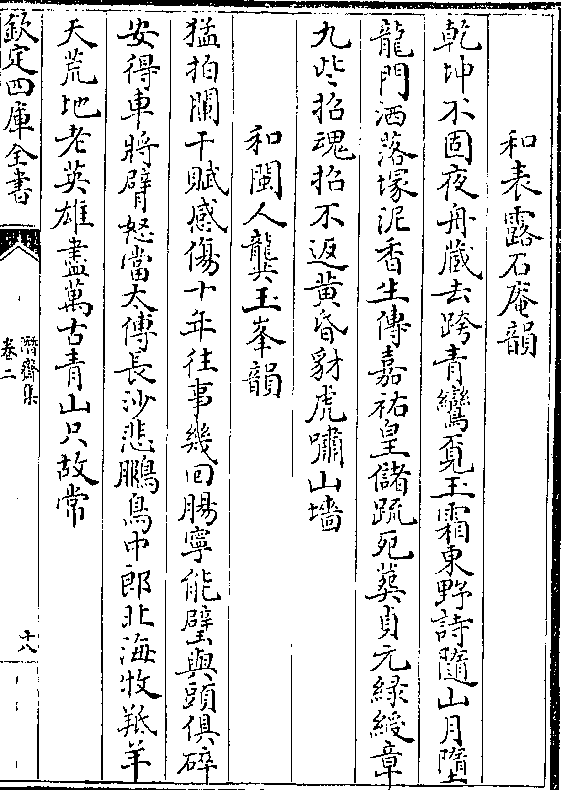 和表露石庵韻
乾坤不固夜舟藏去跨青鸞覓玉霜東野詩隨山月墮
龍門酒落塚泥香生傳嘉祐皇儲疏死葬貞元緑綬章
九些招魂招不返黄昏豺虎嘯山墻
和閩人龔玉峯韻
猛拍闌干賦感傷十年往事幾回腸寧能璧與頭俱碎
安得車將臂怒當太傅長沙悲鵩鳥中郎北海牧羝羊
天荒地老英雄盡萬古青山只故常
欽定四庫全書
潛齋集
卷二
十八